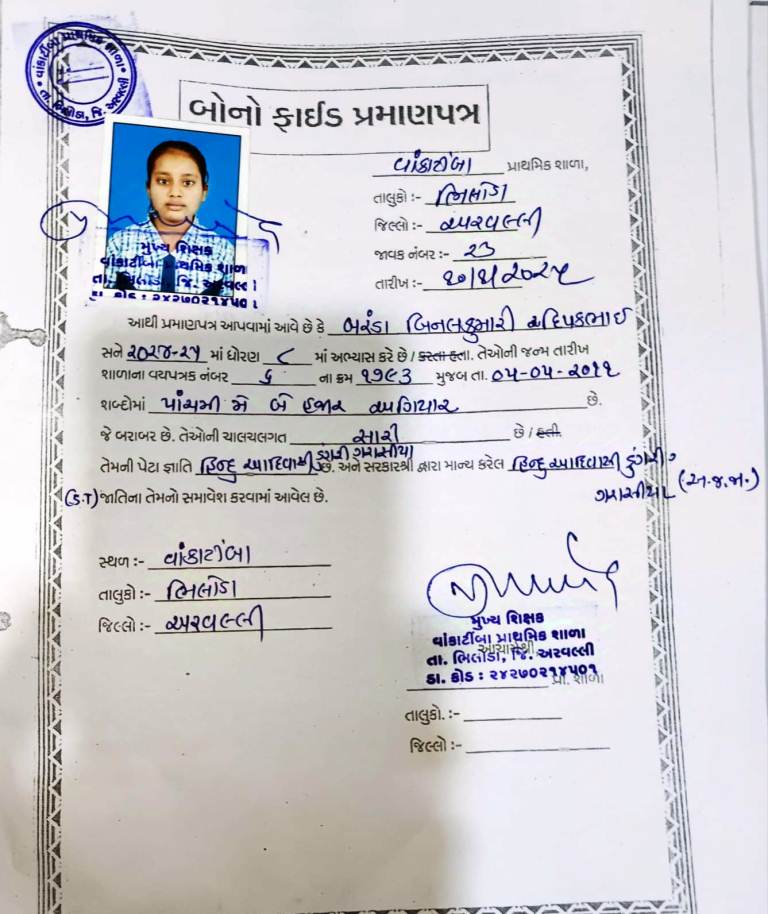 વાંકાટીંબા પ્રાથમિક શાળા
તા. ભિલોડા, જિ. અરવલ્લી
બોનો ફાઈડ પ્રમાણપત્ર
વાંકાટીંબા પ્રાથમિક શાળા,
તાલુકો :- ભિલોડા
જિલ્લો :- અરવલ્લી
જાવક નંબર :- 23
તારીખ :-
મુખ્ય શિક્ષક
વાંકાટીંબા પ્રાથમિક શાળા
તા. ભિલોડા, જિ. અરવલ્લી
ડા. કોડ : ૨૪૨૭૦૨૧૪૫૦૧
આથી પ્રમાણપત્ર આપવામાં આવે છે કે બરંડા બિનલકુમારી દિપકભાઈ
સને ૨૦૨૪-૨૫ માં ધોરણ ૮ માં અભ્યાસ કરે છે / કરતા હતા. તેઓની જન્મ તારીખ
શાળાના વયપત્રક નંબર ૬ ના ક્રમ ૧૭૯૩ મુજબ તા. ૦૫-૦૫-૨૦૧૧
શબ્દોમાં પાંચમી મે બે હજાર અગિયાર છે.
જે બરાબર છે. તેઓની ચાલચલગત સારી છે / હતી.
તેમની પેટા જ્ઞાતિ હિન્દુ આદિવાસી ડુંગરી ગરાસીયા છે. અને સરકારશ્રી દ્વારા માન્ય કરેલ હિન્દુ આદિવાસી ડુંગરી ગરાસીયા (અ.જ.જા.)
(S.T) જાતિના તેમનો સમાવેશ કરવામાં આવેલ છે.
સ્થળ :- વાંકાટીંબા
તાલુકો :- ભિલોડા
જિલ્લો :- અરવલ્લી
મુખ્ય શિક્ષક
વાંકાટીંબા પ્રાથમિક શાળા
આચાર્યશ્રી
તા. ભિલોડા, જિ. અરવલ્લી
ડા. કોડ : ૨૪૨૭૦૨૧૪૫૦૧
પ્રા. શાળા
તાલુકો. :-
જિલ્લો :-